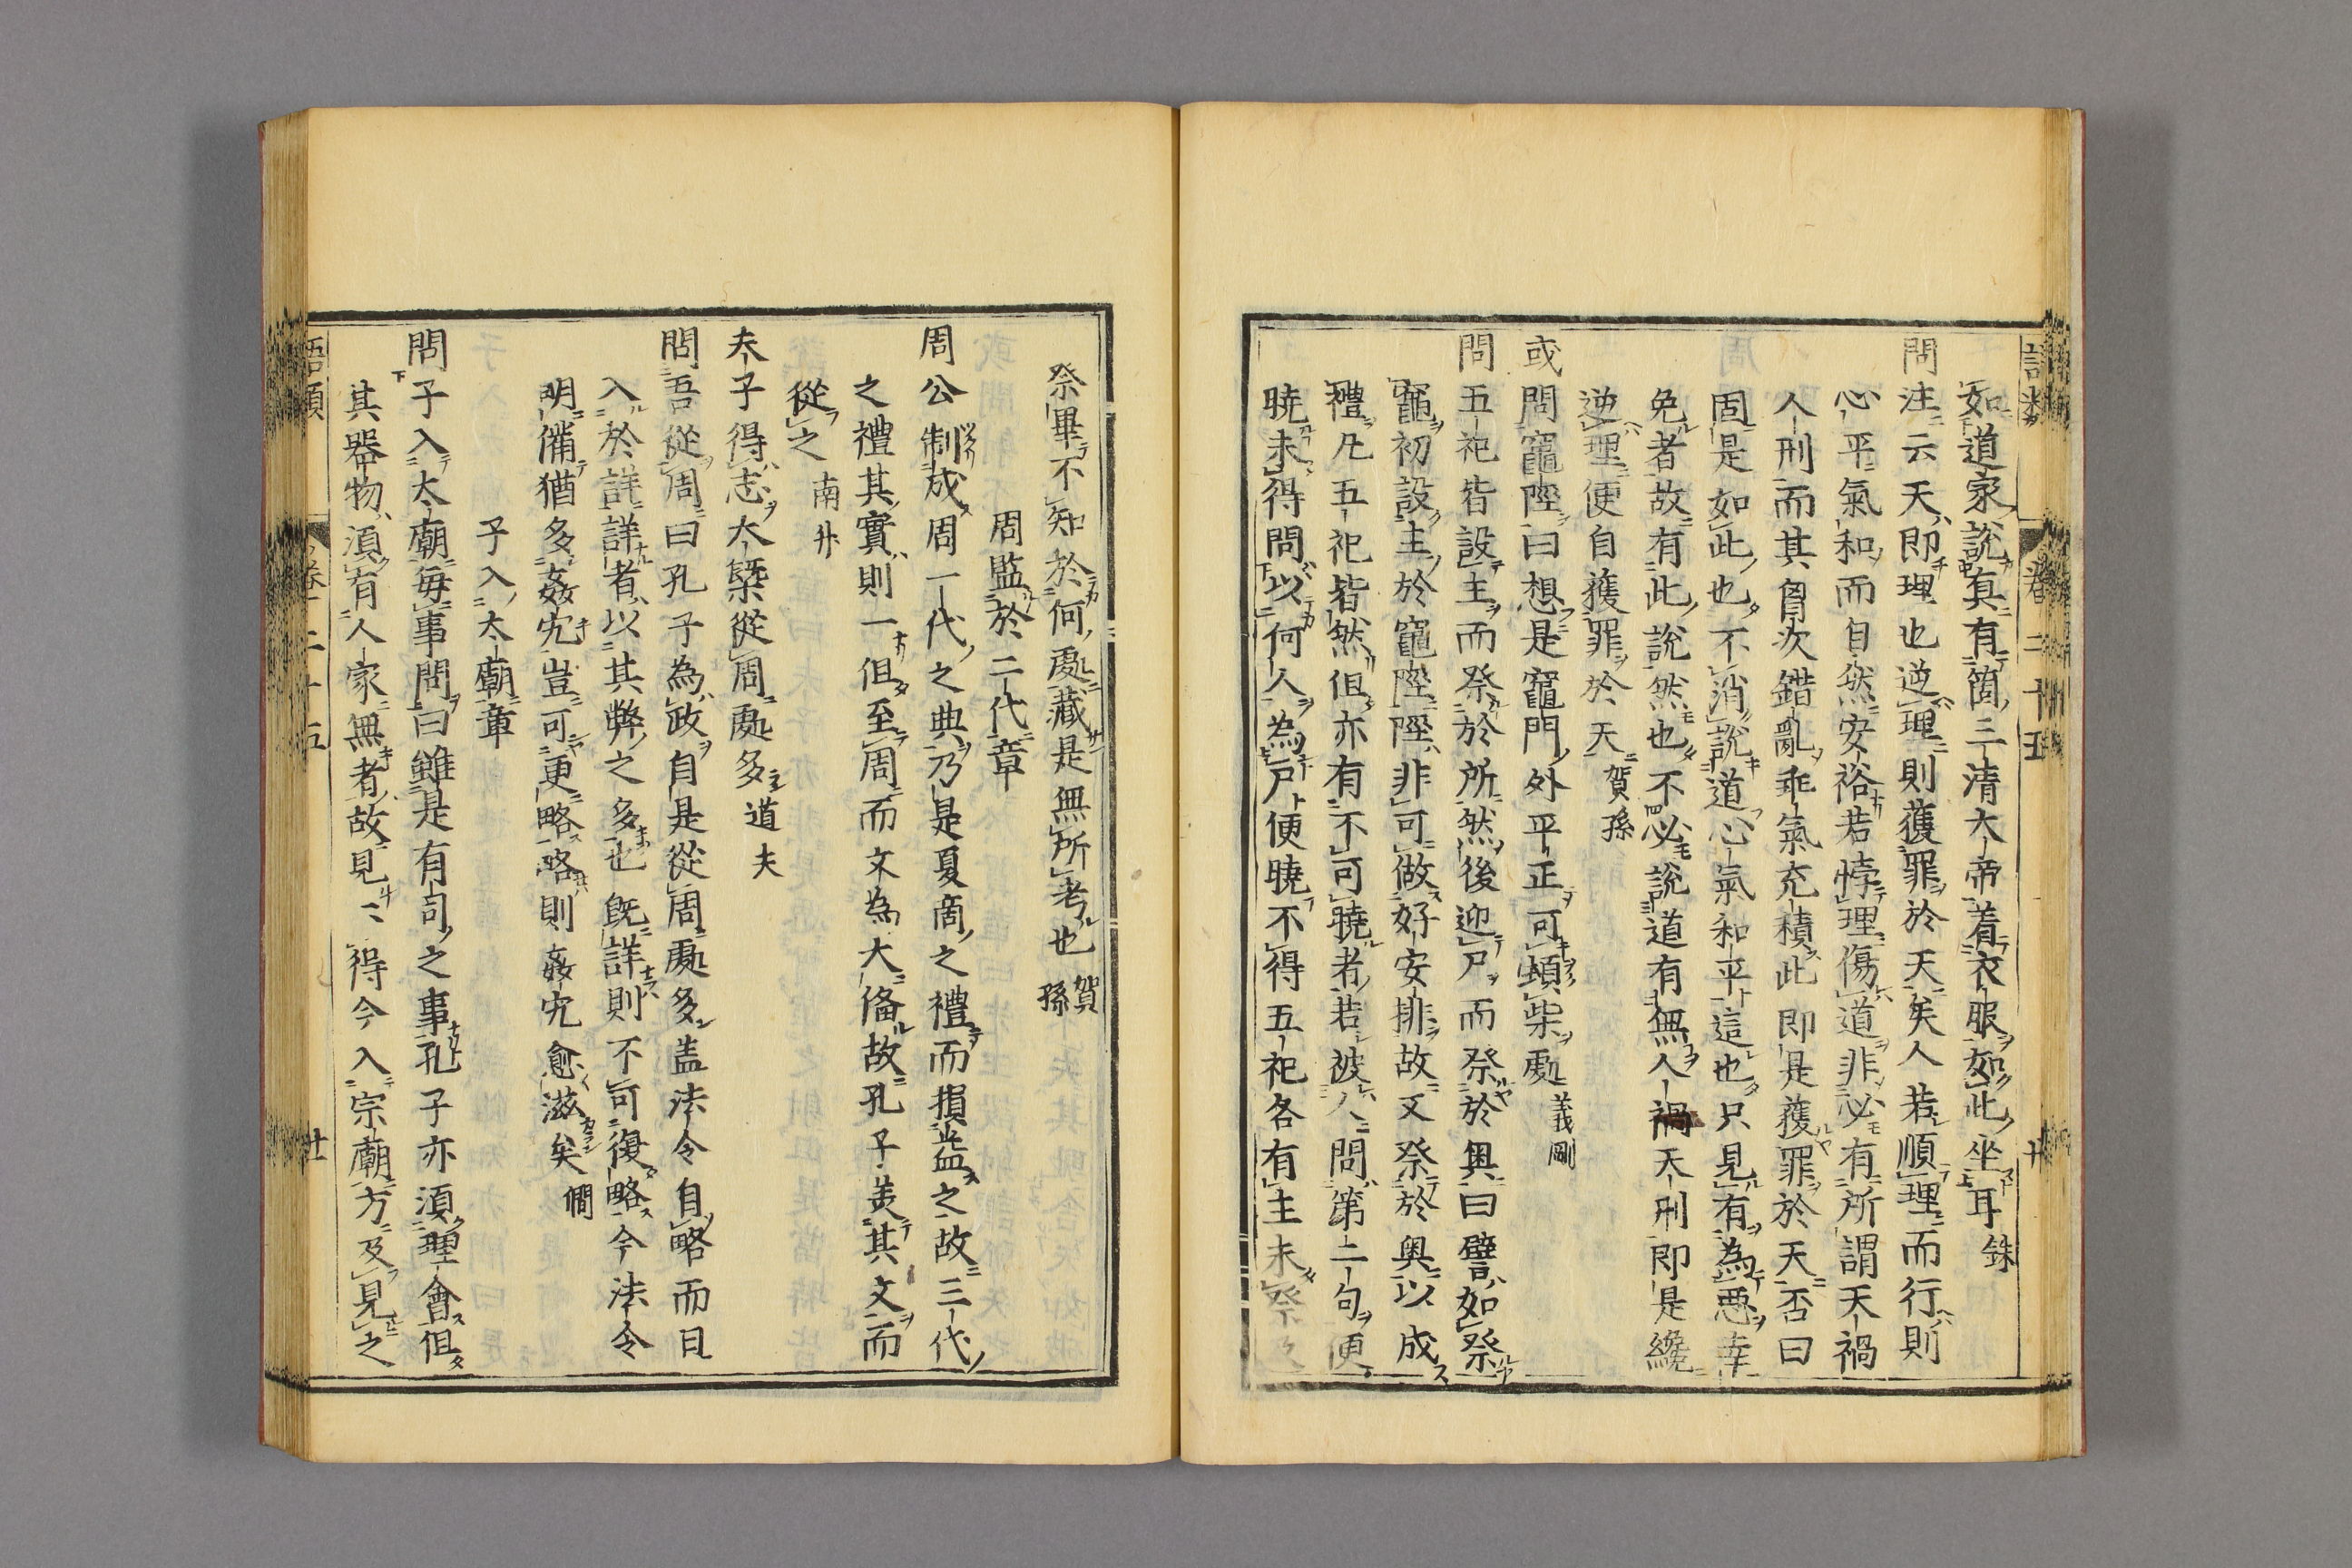 語類 卷二十五 廿
如道家說眞有箇三清大帝着衣服如此坐耳銖
問注云天即理也逆理則獲罪於天矣人若順理而行則
心平氣和而自然安裕若悖理傷道非必有所謂天禍
人刑而其胷次錯亂乖氣充積此即是獲罪於天否曰
固是如此也不消說道心氣和平這也只見有為惡幸
免者故有此說然也不必說道有無人禍天刑即是纔
逆理便自獲罪於天賀孫
或問竈陘曰想是竈門外平正可頓柴處義剛
問五祀皆設主而祭於所然後迎尸而祭於奧曰譬如祭
竈初設主於竈陘陘非可做好安排故又祭於奧以成
禮凡五祀皆然但亦有不可曉者若被人問第二句便
曉未得問以何人為尸便曉不得五祀各有主未祭
祭畢不知於何處藏是無所考也賀孫
周監於二代章
周公制成周一代之典乃是夏商之禮而損益之故三代
之禮其實則一但至周而文為大備故孔子美其文而
從之南升
夫子得志大槩從周處多道夫
問吾從周曰孔子為政自是從周處多盖法令自略而日
入於詳詳者以其弊之多也既詳則不可復略今法令
明備猶多姦宄豈可更略略則姦宄愈滋矣僩
子入太廟章
問子入太廟每事問曰雖是有司之事孔子亦須理會但
其器物須有人家無者故見〻得今入宗廟方及見之
語類 卷二十五 廿